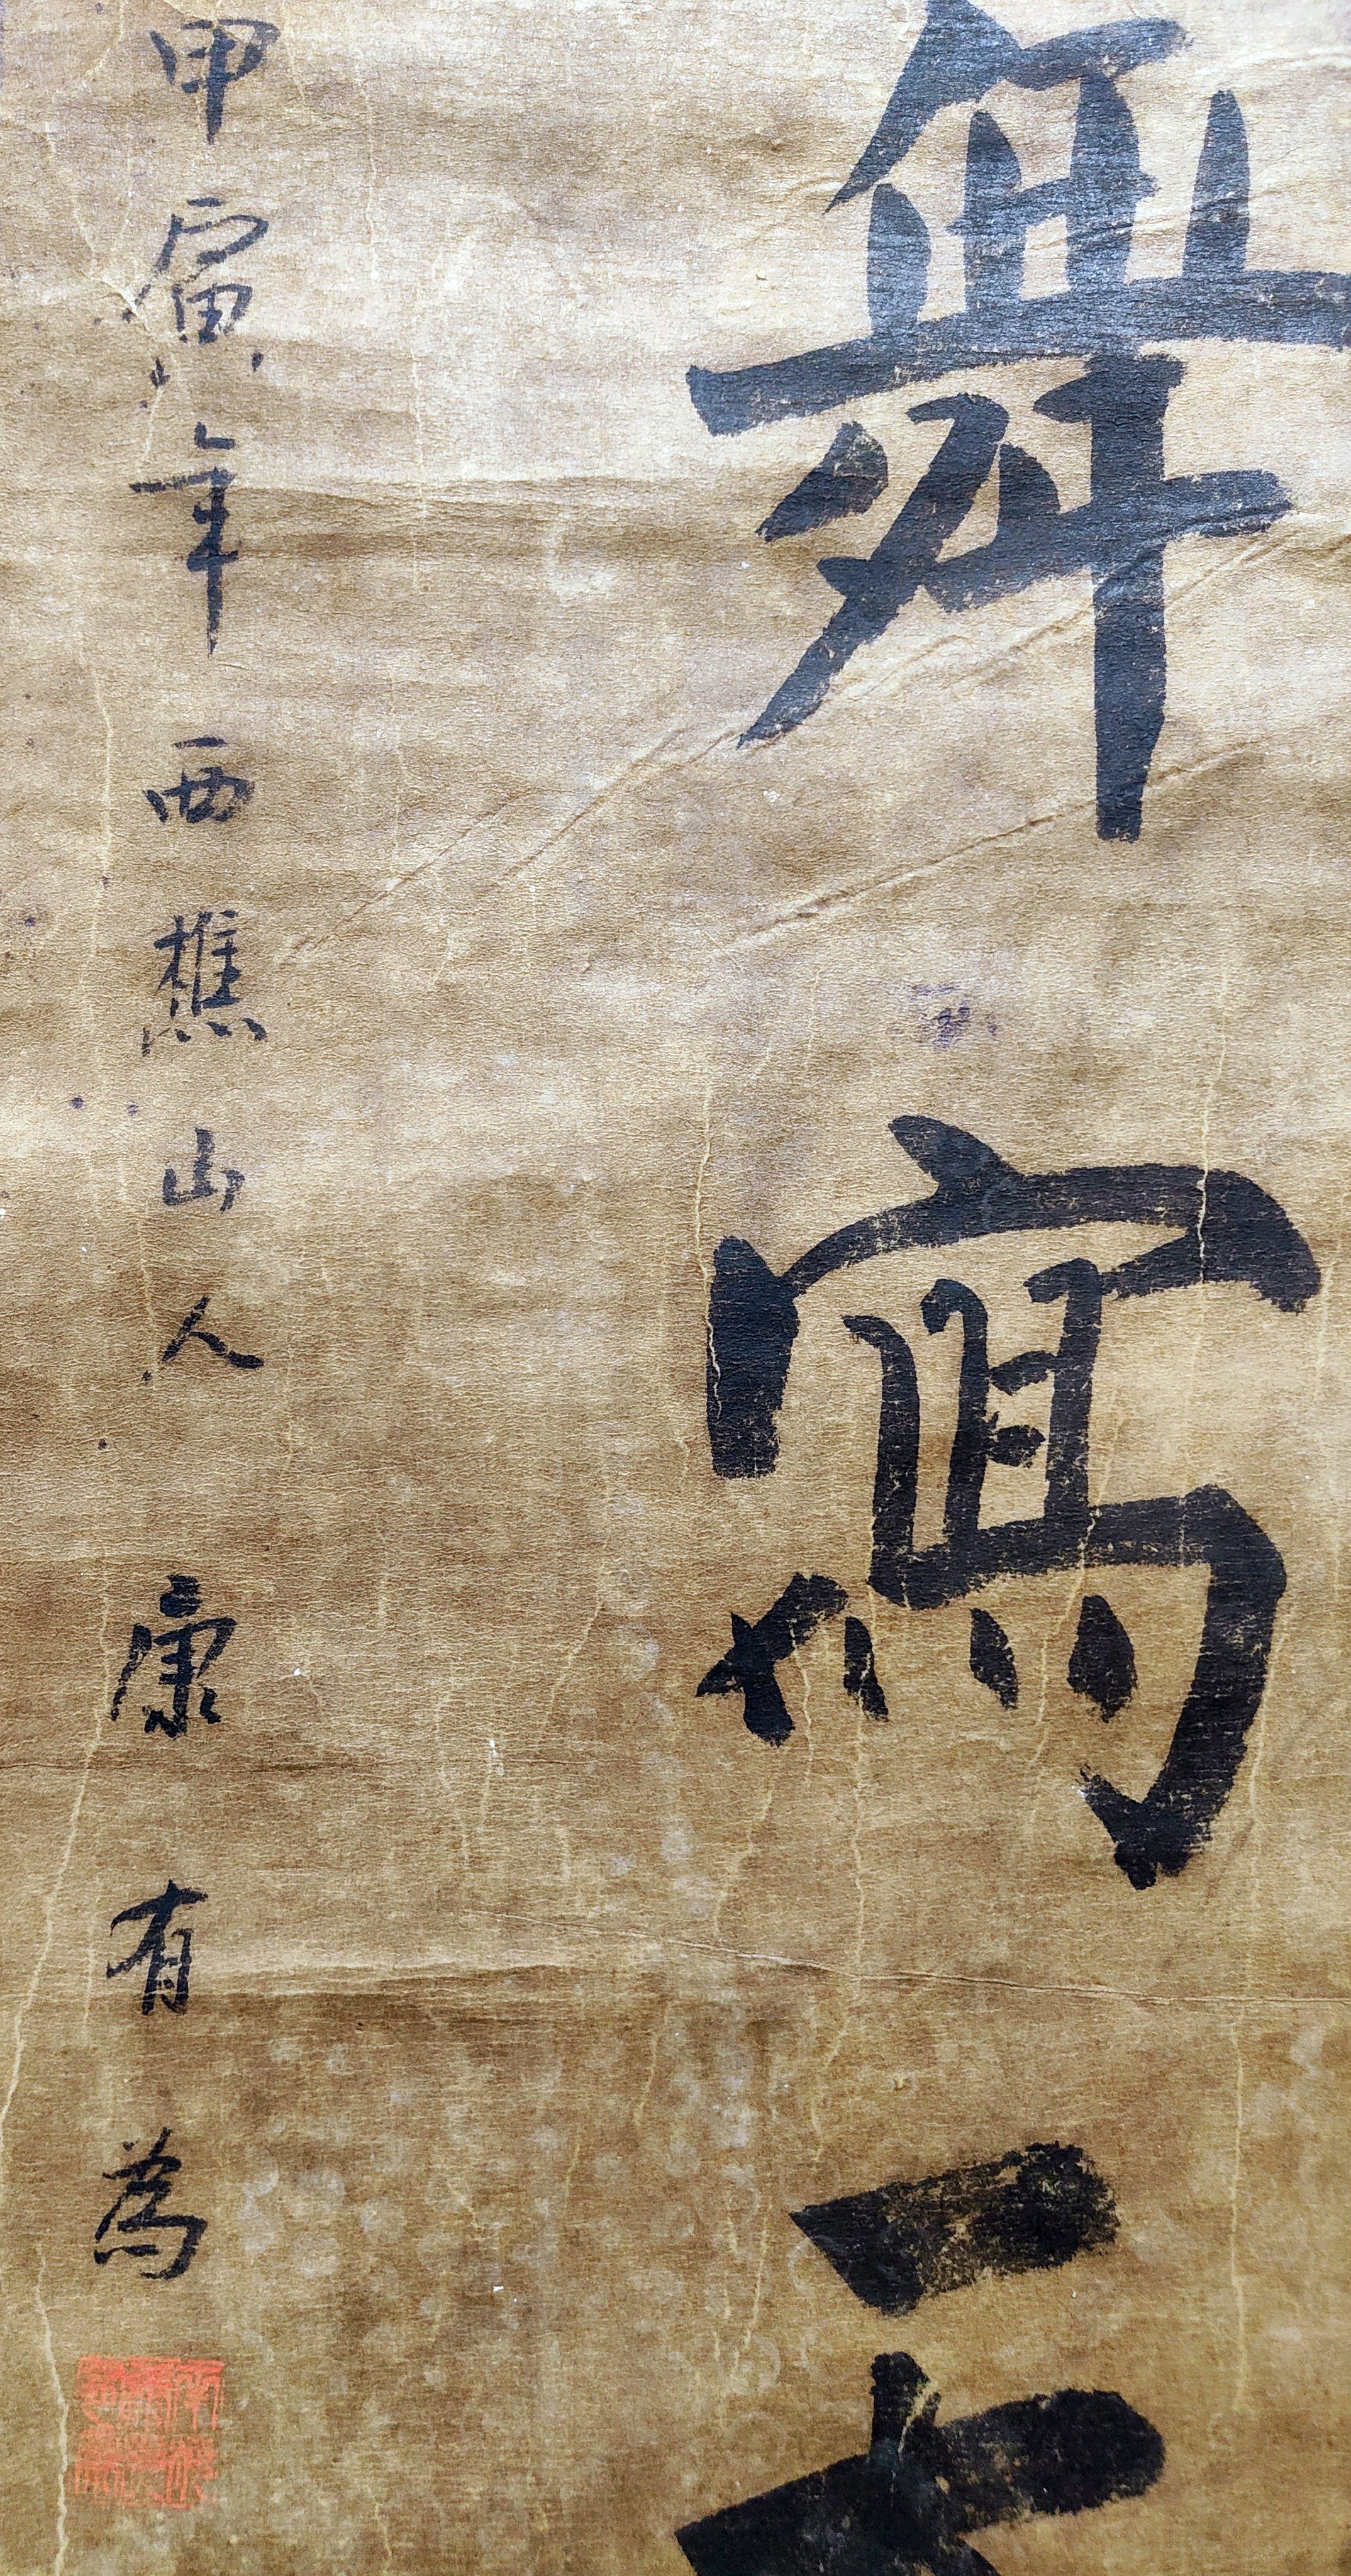 舞寫天
甲寅年西樵山人康有為